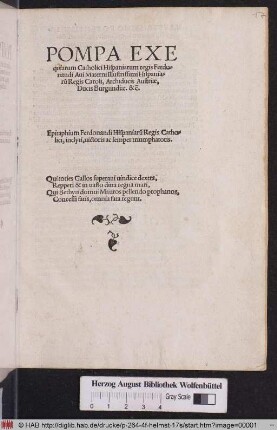 POMPA EXE
quiarum Catholici Hispaniarum regis Ferdi
nandi Aui Materni illustrissimi Hispania-
rū Regis Caroli, Archiducis Austriæ,
Ducis Burgundiæ. &c.
Epitaphium Ferdonandi Hispaniarū Regis Catho-
lici, inclyti, victoris ac semper triumphatoris.
Qui toties Gallos superaui vindice dextra,
Repperi & in vasto dura regna mari,
Qui
domui Mauros pellendo prophanos,
omnia fata regunt.
Herzog August Bibliothek Wolfenbüttel
Gray Scale
0 1 2 3 4
© HAB http://diglib.hab.de/drucke/p-264-4f-helmst-17s/start.htm?image=00001